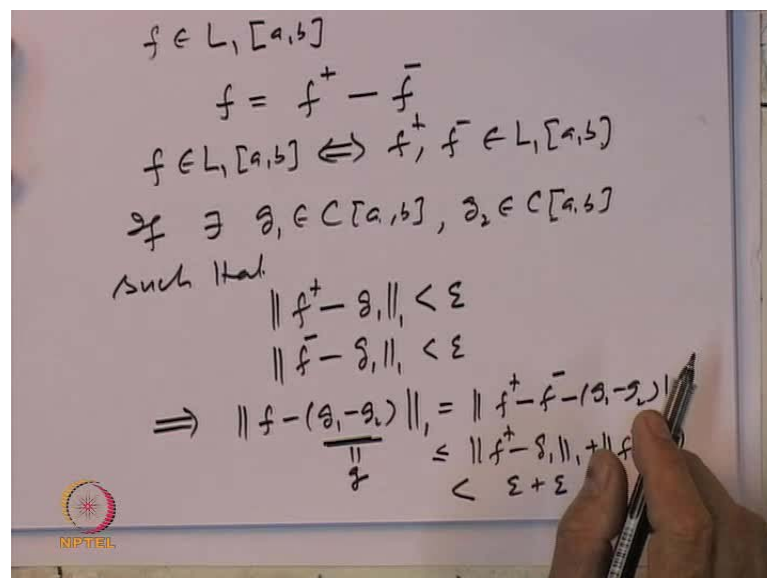 f ∈ L₁ [a,b]
f = f⁺ − f⁻
f ∈ L₁ [a,b] ⟺ f⁺, f⁻ ∈ L₁ [a,b]
If ∃ g₁ ∈ C[a,b], g₂ ∈ C[a,b]
such that
‖ f⁺ − g₁ ‖₁ < ε
‖ f⁻ − g₁ ‖₁ < ε
⟹ ‖ f − (g₁ − g₂) ‖₁ = ‖ f⁺ − f⁻ − (g₁ − g₂)
‖ g
≤ ‖ f⁺ − g₁ ‖₁ + ‖ f
< ε + ε
NPTEL